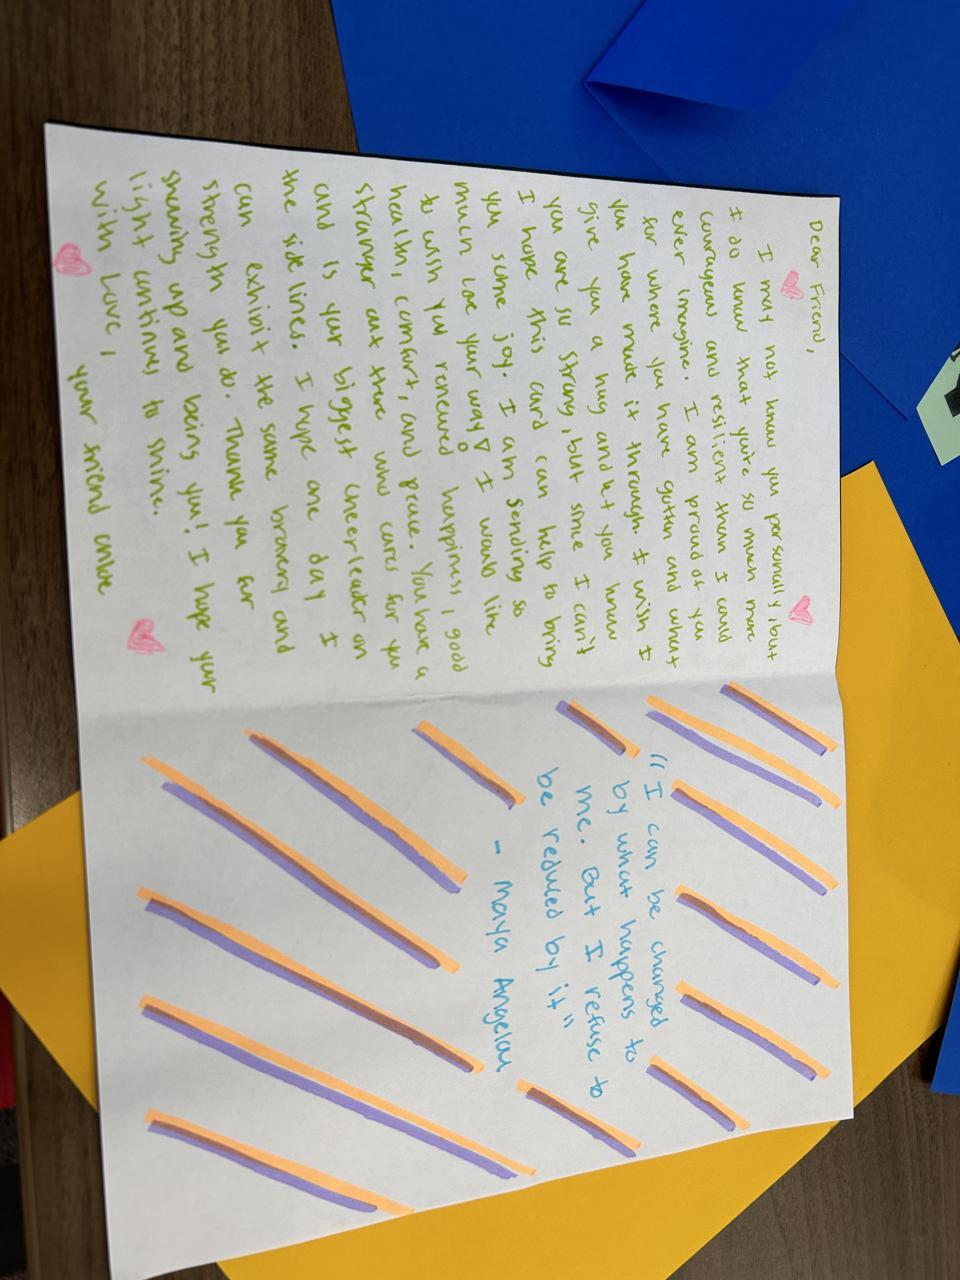 Dear Friend,
I may not know you personally, but
I do know that you're so much more
courageous and resilient than I could
ever imagine. I am proud of you
for where you have gotten and what
you have made it through. I wish I
give you a hug and let you know
you are so strong, but since I can't
I hope this card can help to bring
you some joy. I am sending so
much love your way! I would like
to wish you renewed happiness, good
health, comfort, and peace. You have a
stranger out there who cares for you
and is your biggest cheerleader on
the side lines. I hope one day I
can exhibit the same bravery and
strength you do. Thank you for
showing up and being you! I hope your
light continues to shine.
with Love, your friend chloe
"I can be changed
by what happens to
me. But I refuse to
be reduced by it"
- Maya Angelou